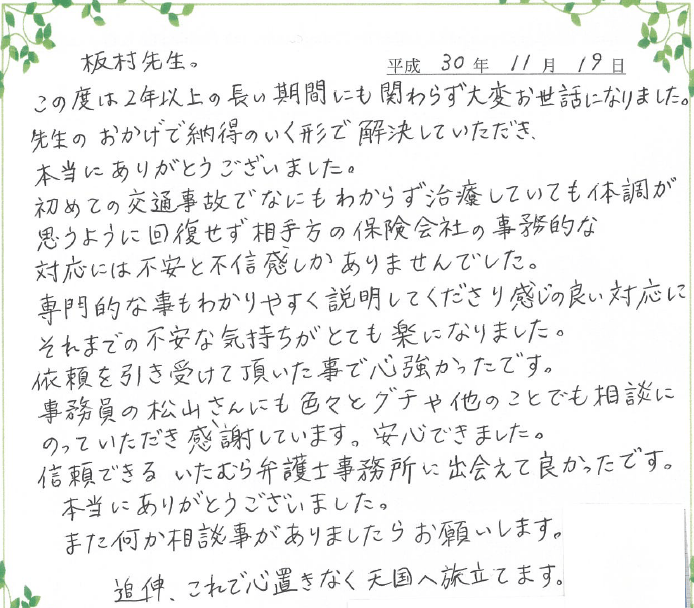 板村先生。
平成 30年 11月 19日
この度は2年以上の長い期間にも関わらず大変お世話になりました。
先生のおかげで納得のいく形で解決していただき、
本当にありがとうございました。
初めての交通事故でなにもわからず治療していても体調が
思うように回復せず相手方の保険会社の事務的な
対応には不安と不信感しかありませんでした。
専門的な事もわかりやすく説明してくださり感じの良い対応に
それまでの不安な気持ちがとても楽になりました。
依頼を引き受けて頂いた事で心強かったです。
事務員の松山さんにも色々とグチや他のことでも相談に
のっていただき感謝しています。安心できました。
信頼できる いたむら弁護士事務所に出会えて良かったです。
本当にありがとうございました。
また何か相談事がありましたらお願いします。
追伸、これで心置きなく天国へ旅立てます。